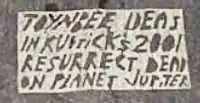 TOYNBEE IDEAS
IN KUBRICK'S 2001
RESURRECT DEAD
ON PLANET JUPITER